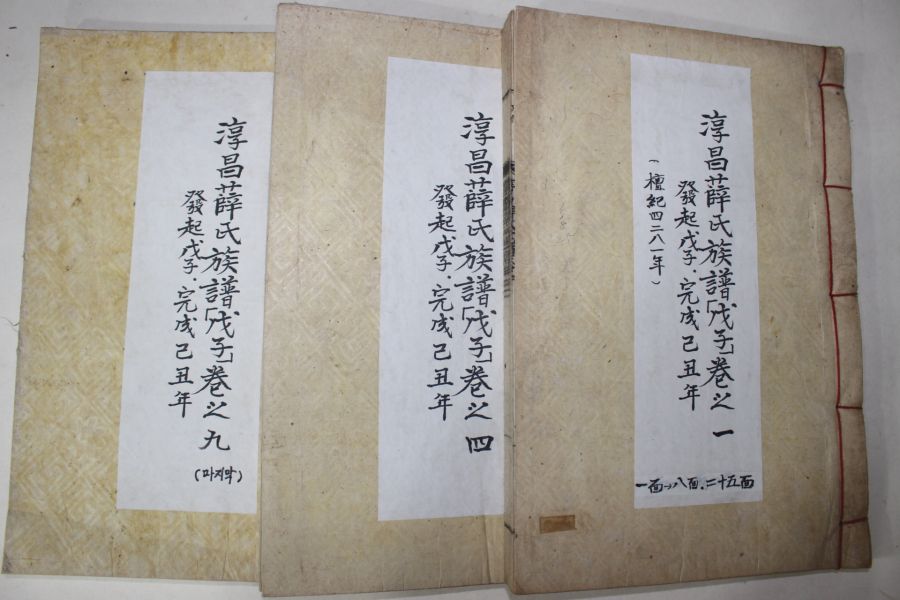 淳昌薛氏族譜「戊子」卷之一
發起戊子.完成己丑年
(檀紀四二八一年)
一面→八面.二十五面
淳昌薛氏族譜「戊子」卷之四
發起戊子.完成己丑年
淳昌薛氏族譜「戊子」卷之九
發起戊子.完成己丑年
(마지막)